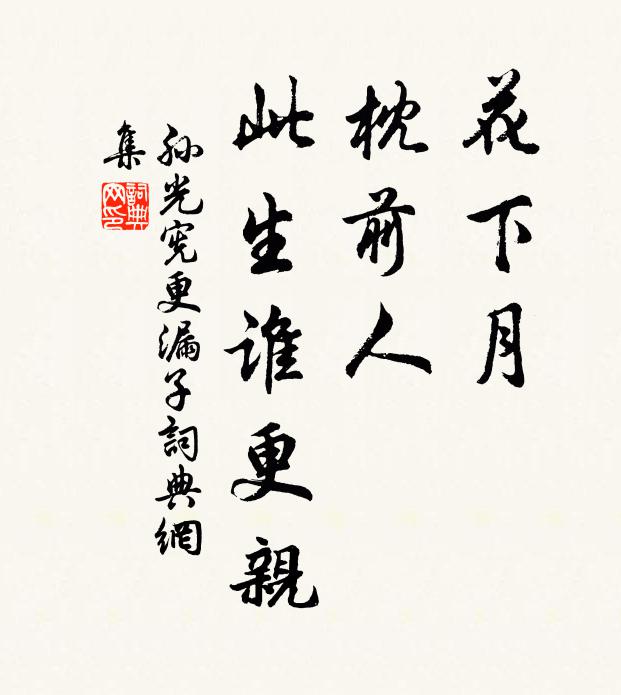 花下月
枕前人
此生谁更親
孙光宪更漏子詞典網
集
詞典
网印